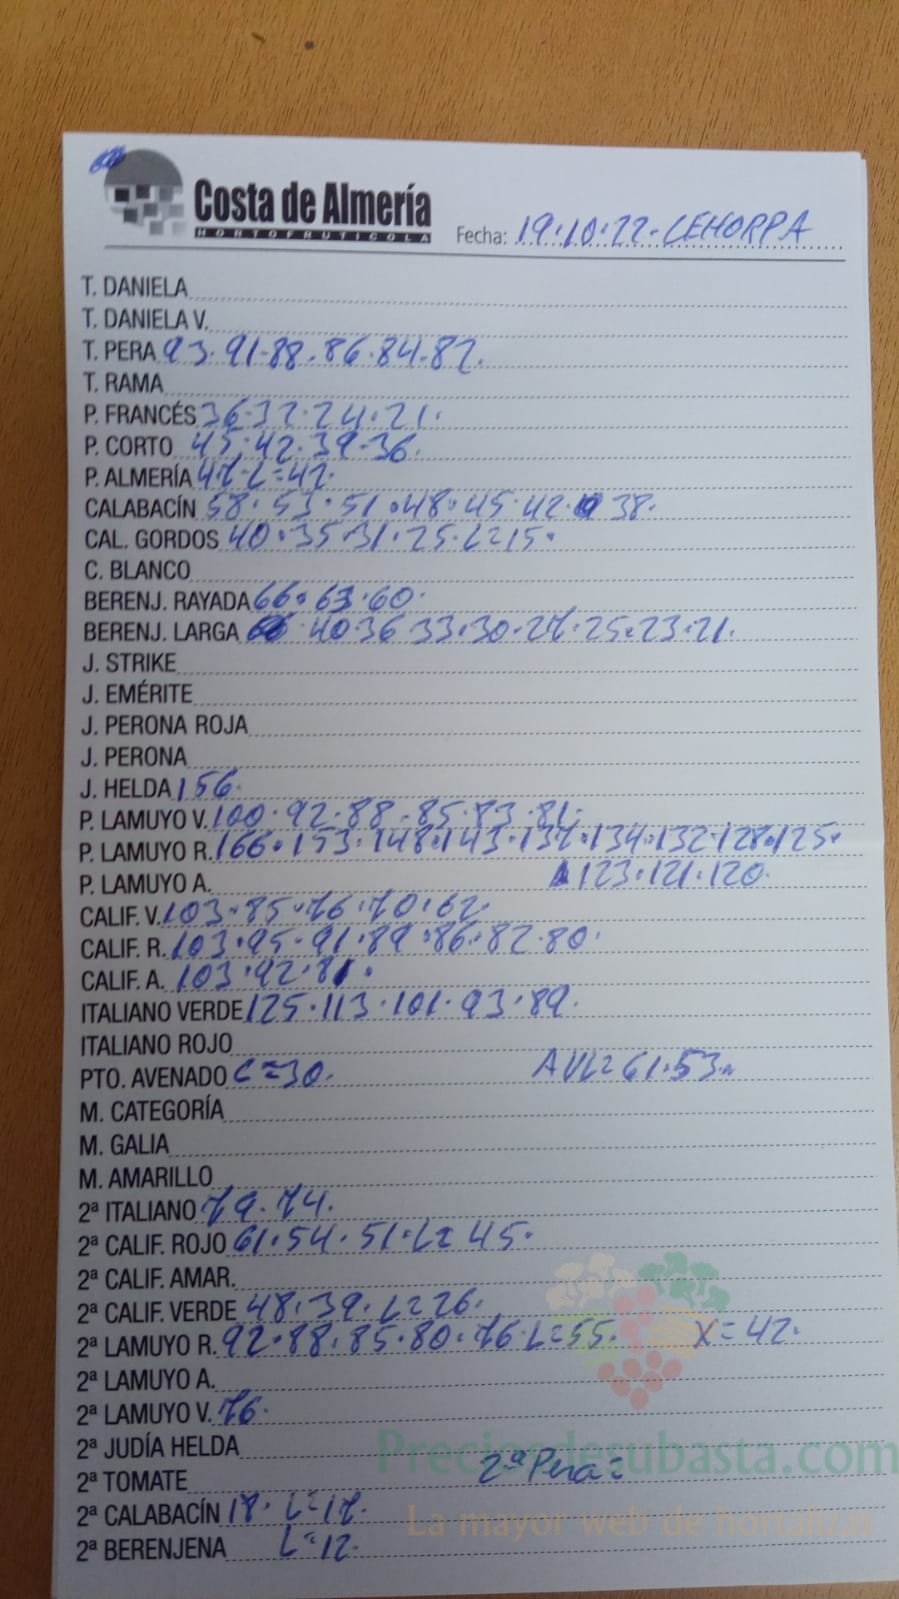 Costa de Almería
HORTOFRUTICOLA
Fecha: 19.10.22. CEHORPA
T. DANIELA
T. DANIELA V.
T. PERA 93.91.88.86.84.82.
T. RAMA
P. FRANCÉS 36.32.24.21.
P. CORTO 45.42.39.36.
P. ALMERÍA 47.L=42.
CALABACÍN 58.53.51.48.45.42.38.
CAL. GORDOS 40.35.31.25.L=15.
C. BLANCO
BERENJ. RAYADA 66.63.60.
BERENJ. LARGA 40.36 33.30.27.25.23.21.
J. STRIKE
J. EMÉRITE
J. PERONA ROJA
J. PERONA
J. HELDA 156.
P. LAMUYO V. 100.92.88.85.83.81.
P. LAMUYO R. 166.153.148.143.137.134.132.128.125.
P. LAMUYO A. 123.121.120.
CALIF. V. 103.85.76.70.62.
CALIF. R. 103.95.91.89.86.82.80.
CALIF. A. 103.92.81.
ITALIANO VERDE 125.113.101.93.89.
ITALIANO ROJO
PTO. AVENADO C=30. AVL=61.53.
M. CATEGORÍA
M. GALIA
M. AMARILLO
2ª ITALIANO 79.74.
2ª CALIF. ROJO 61.54.51.L=45.
2ª CALIF. AMAR.
2ª CALIF. VERDE 48.39.L=26.
2ª LAMUYO R. 92.88.85.80.76.L=55. X=42.
2ª LAMUYO A.
2ª LAMUYO V. 76.
2ª JUDÍA HELDA
Preciosdesubasta.com
2ª TOMATE 2ª Pera=
2ª CALABACÍN 18. L=17.
La mayor web de hortalizas
2ª BERENJENA L=12.